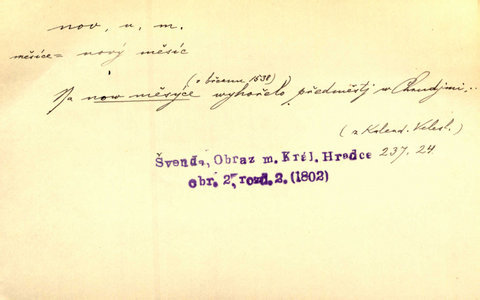 nov, u, m.
měsíce = nový měsíc
(v březnu 1538)
Na now měsýce wyhořelo předměstj w Chrudjmi...
(z Kalend. Velesl.)
Švenda, Obraz m. Král. Hradce 237, 24
obr. 2, rozd. 2. (1802)